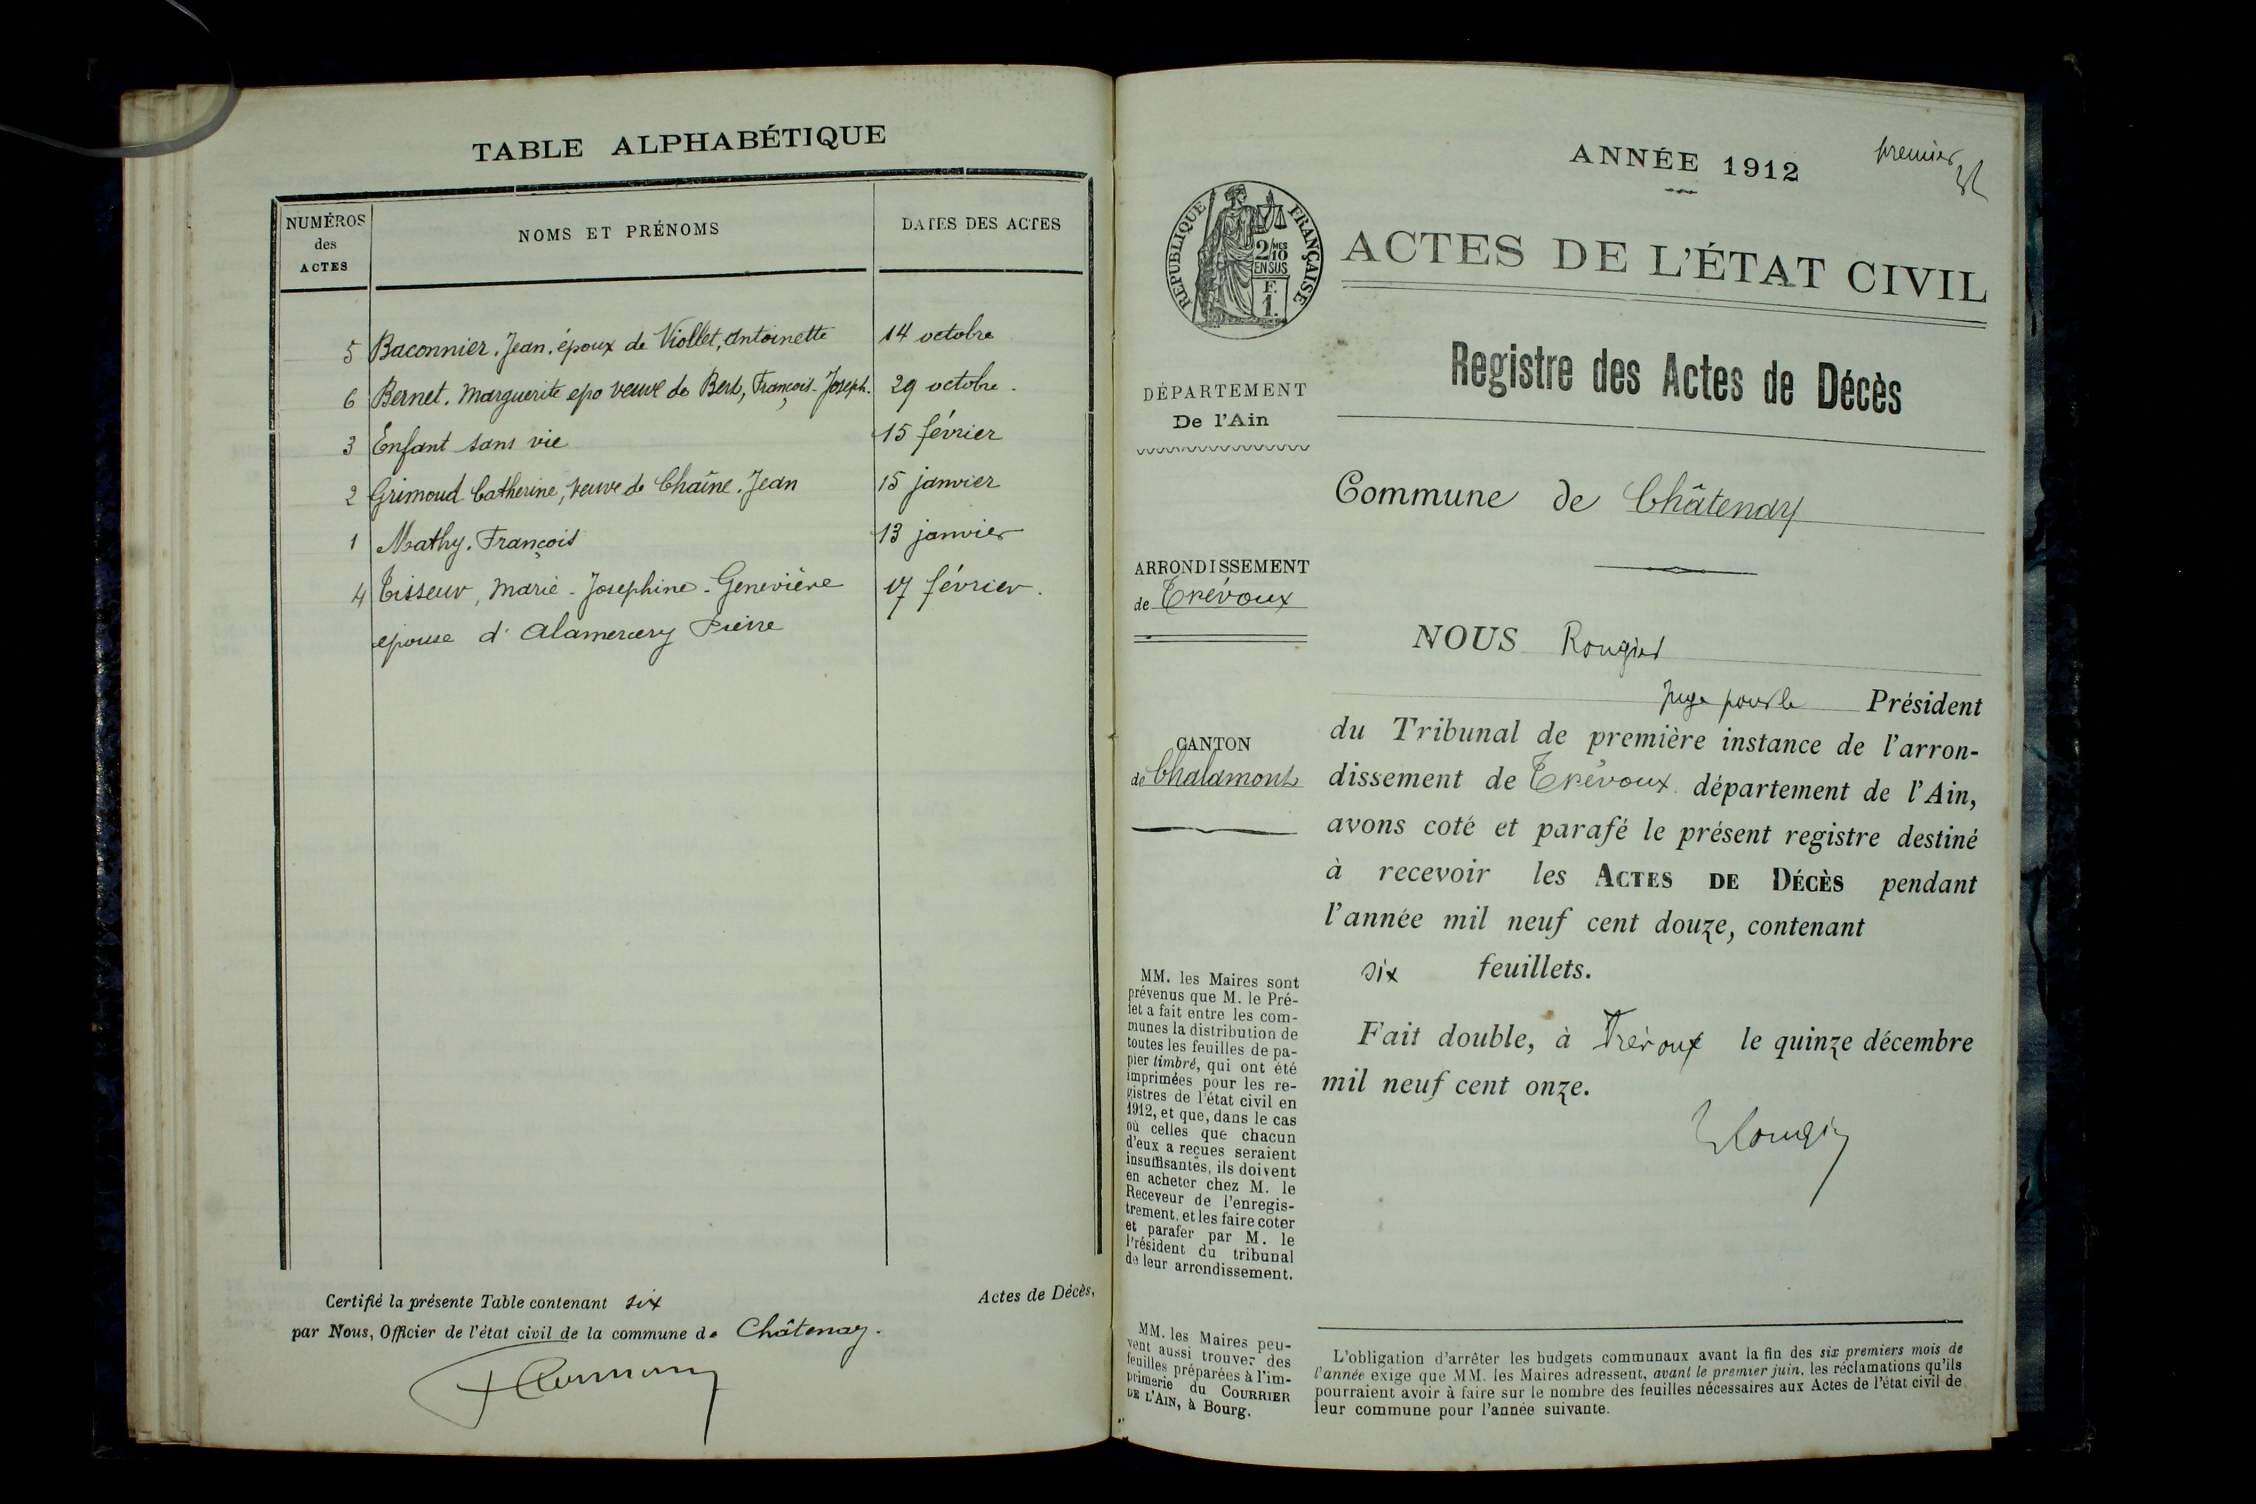 TABLE ALPHABÉTIQUE
NUMÉROS des ACTES
NOMS ET PRÉNOMS
DATES DES ACTES
5 Baconnier. Jean. époux de Viollet, Antoinette 14 octobre
6 Bernet. Marguerite epo veuve de Bert, François-Joseph. 29 octobre.
3 Enfant sans vie 15 février
2 Grimoud Catherine, veuve de Chaîne. Jean 15 janvier
1 Mathy. François 13 janvier
4 Tisseur, Marie-Josephine-Geneviève 17 février.
epouse d'Alamercery Pierre
Certifié la présente Table contenant six Actes de Décès,
par Nous, Officier de l'état civil de la commune de Châtenay.
ANNÉE 1912
premier
RÉPUBLIQUE FRANÇAISE
2/10 MES
EN SUS
F.
1.
ACTES DE L'ÉTAT CIVIL
Registre des Actes de Décès
DÉPARTEMENT
De l'Ain
Commune de Châtenay
ARRONDISSEMENT
de Trévoux
CANTON
de Chalamont
NOUS Rougier
Juge pour le Président
du Tribunal de première instance de l'arron-
dissement de Trévoux département de l'Ain,
avons coté et parafé le présent registre destiné
à recevoir les ACTES DE DÉCÈS pendant
l'année mil neuf cent douze, contenant
six feuillets.
Fait double, à Trévoux le quinze décembre
mil neuf cent onze.
Rougier
MM. les Maires sont
prévenus que M. le Pré-
fet a fait entre les com-
munes la distribution de
toutes les feuilles de pa-
pier timbré, qui ont été
imprimées pour les re-
gistres de l'état civil en
1912, et que, dans le cas
où celles que chacun
d'eux a reçues seraient
insuffisantes, ils doivent
en acheter chez M. le
Receveur de l'enregis-
trement, et les faire coter
et parafer par M. le
Président du tribunal
de leur arrondissement.
MM. les Maires peu-
vent aussi trouver des
feuilles préparées à l'im-
primerie du COURRIER
DE L'AIN, à Bourg.
L'obligation d'arrêter les budgets communaux avant la fin des six premiers mois de
l'année exige que MM. les Maires adressent, avant le premier juin, les réclamations qu'ils
pourraient avoir à faire sur le nombre des feuilles nécessaires aux Actes de l'état civil de
leur commune pour l'année suivante.